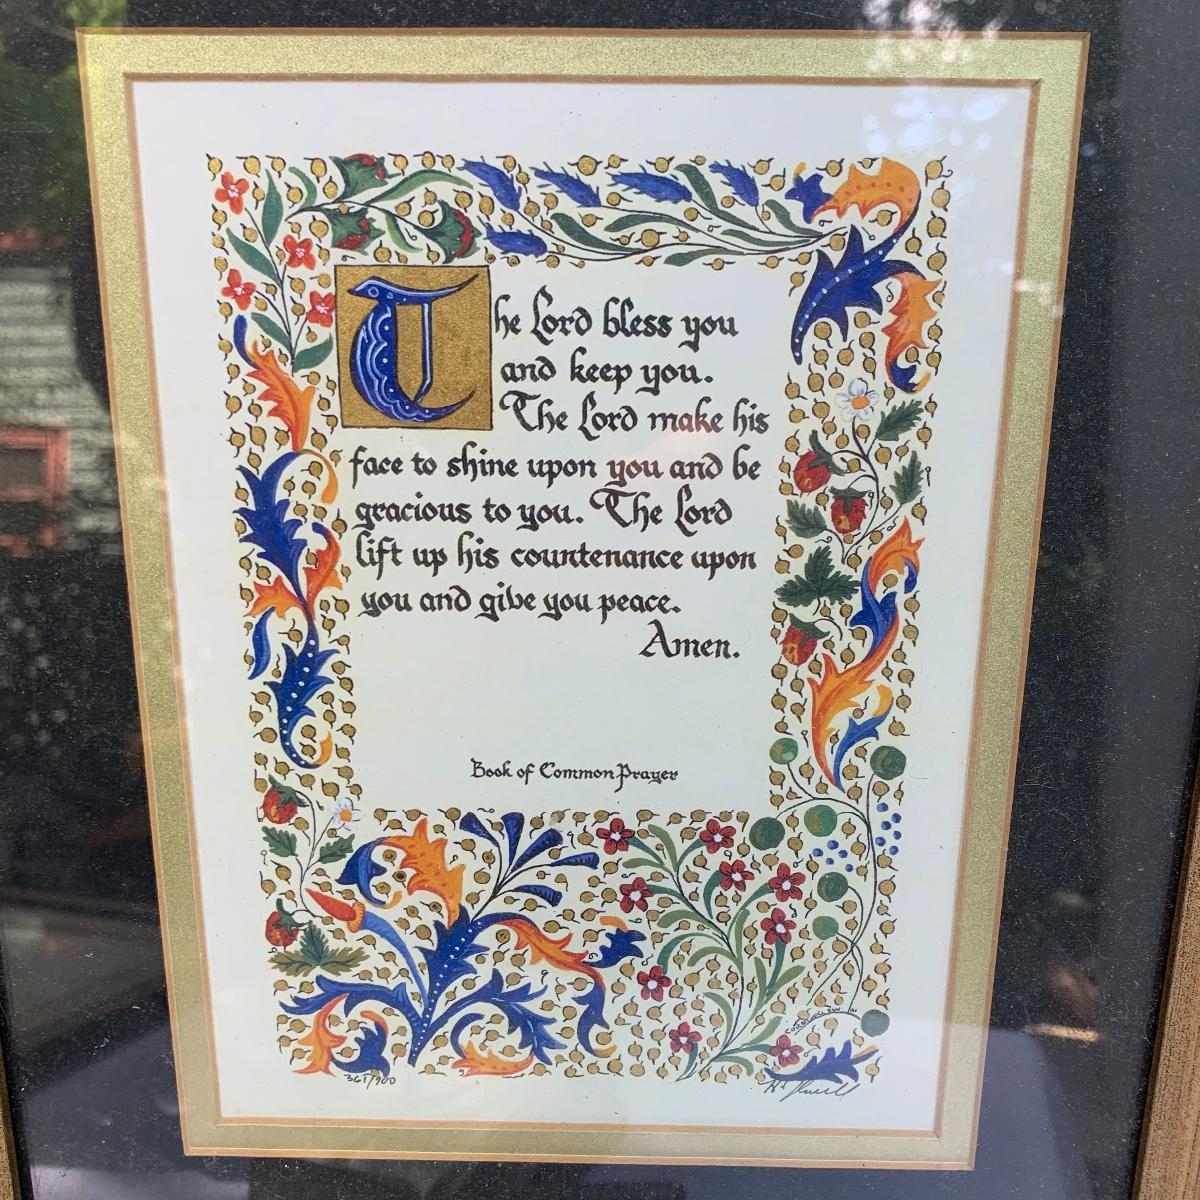 The Lord bless you
and keep you.
The Lord make his
face to shine upon you and be
gracious to you. The Lord
lift up his countenance upon
you and give you peace.
Amen.
Book of Common Prayer
361/900